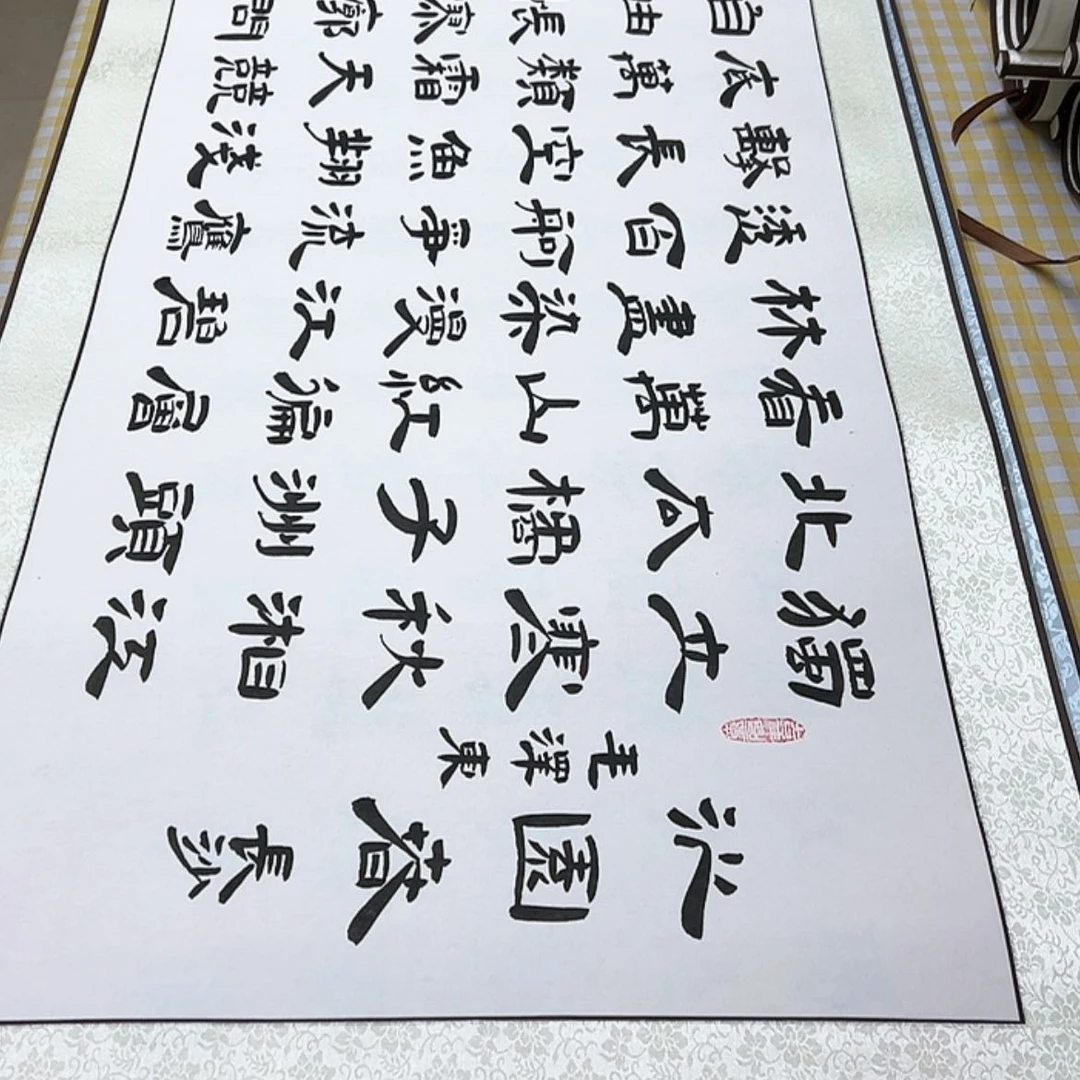 沁園春
長沙
毛澤東
獨立寒秋湘江
北去橘子洲頭
看萬山紅遍層
林盡染漫江碧
透百舸爭流鷹
擊長空魚翔淺
底萬類霜天競
自由悵寥廓問